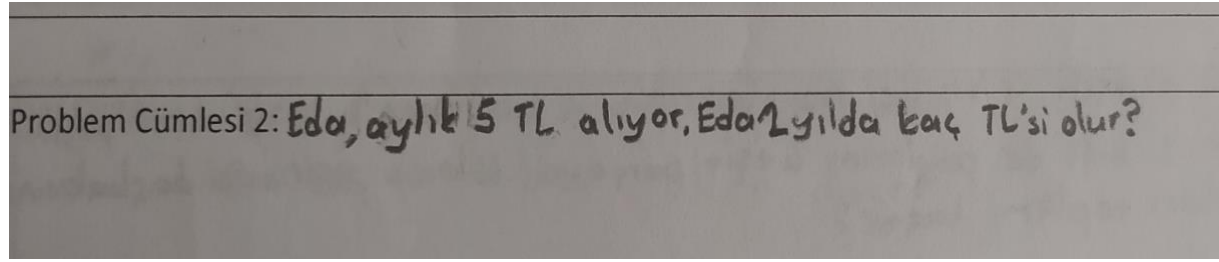 Problem Cümlesi 2: Eda, aylık 5 TL alıyor, Eda 2 yılda kaç TL'si olur?